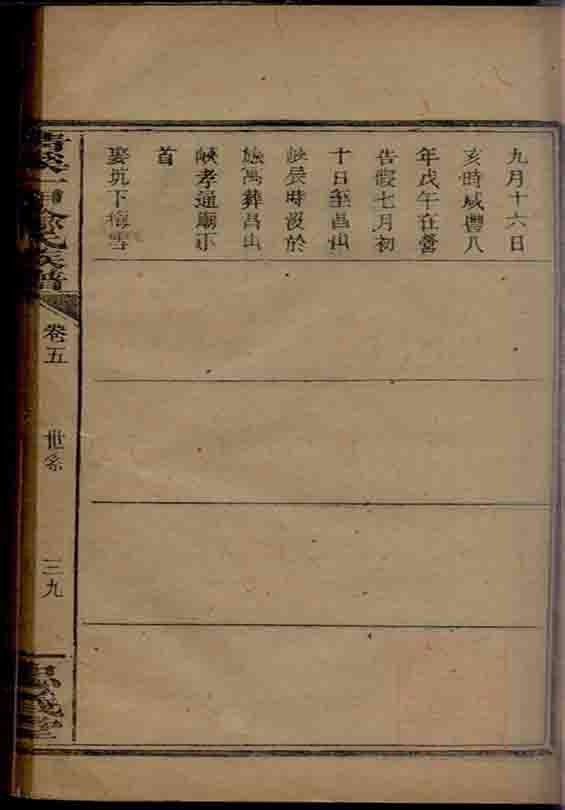 九月十六日
亥時咸豐八
年戊午在營
告假七月初
十日至昌山
峽辰時没於
旅寓葬昌山
峽孝通廟下
首
娶坑下梅雪
氏族譜
卷五
世系
三九